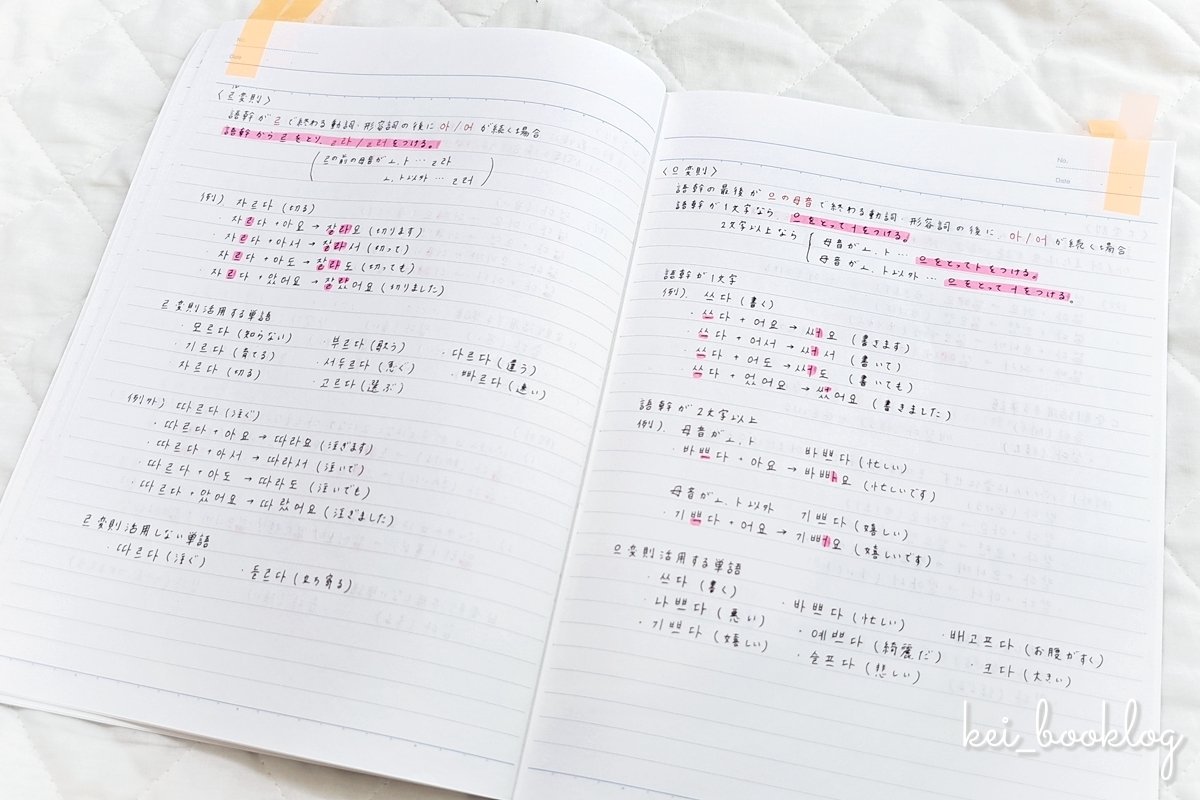 No.
Date
〈르変則〉
語幹が르で終わる動詞・形容詞の後に 아/어 が続く場合
語幹から르をとり、ㄹ라/ㄹ러をつける。
르の前の母音がㅗ,ㅏ … ㄹ라
ㅗ,ㅏ以外 … ㄹ러
例) 자르다 (切る)
・자르다 + 아요 → 잘라요 (切ります)
・자르다 + 아서 → 잘라서 (切って)
・자르다 + 아도 → 잘라도 (切っても)
・자르다 + 았어요 → 잘랐어요 (切りました)
르変則活用する単語
・모르다 (知らない) ・부르다 (歌う) ・다르다 (違う)
・기르다 (育てる) ・서두르다 (急ぐ) ・빠르다 (速い)
・자르다 (切る) ・고르다 (選ぶ)
例外) 따르다 (注ぐ)
・따르다 + 아요 → 따라요 (注ぎます)
・따르다 + 아서 → 따라서 (注いで)
・따르다 + 아도 → 따라도 (注いでも)
・따르다 + 았어요 → 따랐어요 (注ぎました)
르変則活用しない単語
・따르다 (注ぐ) ・들르다 (立ち寄る)
No.
Date
〈으変則〉
語幹の最後が으の母音で終わる動詞・形容詞の後に、아/어が続く場合
語幹が1文字なら、으をとってㅓをつける。
2文字以上なら 母音がㅗ,ㅏ … 으をとってㅏをつける。
母音がㅗ,ㅏ以外 … 으をとってㅓをつける。
語幹が1文字
例) 쓰다 (書く)
・쓰다 + 어요 → 써요 (書きます)
・쓰다 + 어서 → 써서 (書いて)
・쓰다 + 어도 → 써도 (書いても)
・쓰다 + 었어요 → 썼어요 (書きました)
語幹が2文字以上
例) 母音がㅗ,ㅏ 바쁘다 (忙しい)
・바쁘다 + 아요 → 바빠요 (忙しいです)
母音がㅗ,ㅏ以外 기쁘다 (嬉しい)
・기쁘다 + 어요 → 기뻐요 (嬉しいです)
으変則活用する単語
・쓰다 (書く) ・바쁘다 (忙しい) ・배고프다 (お腹がすく)
・나쁘다 (悪い) ・예쁘다 (綺麗だ) ・크다 (大きい)
・기쁘다 (嬉しい) ・슬프다 (悲しい)
kei_booklog